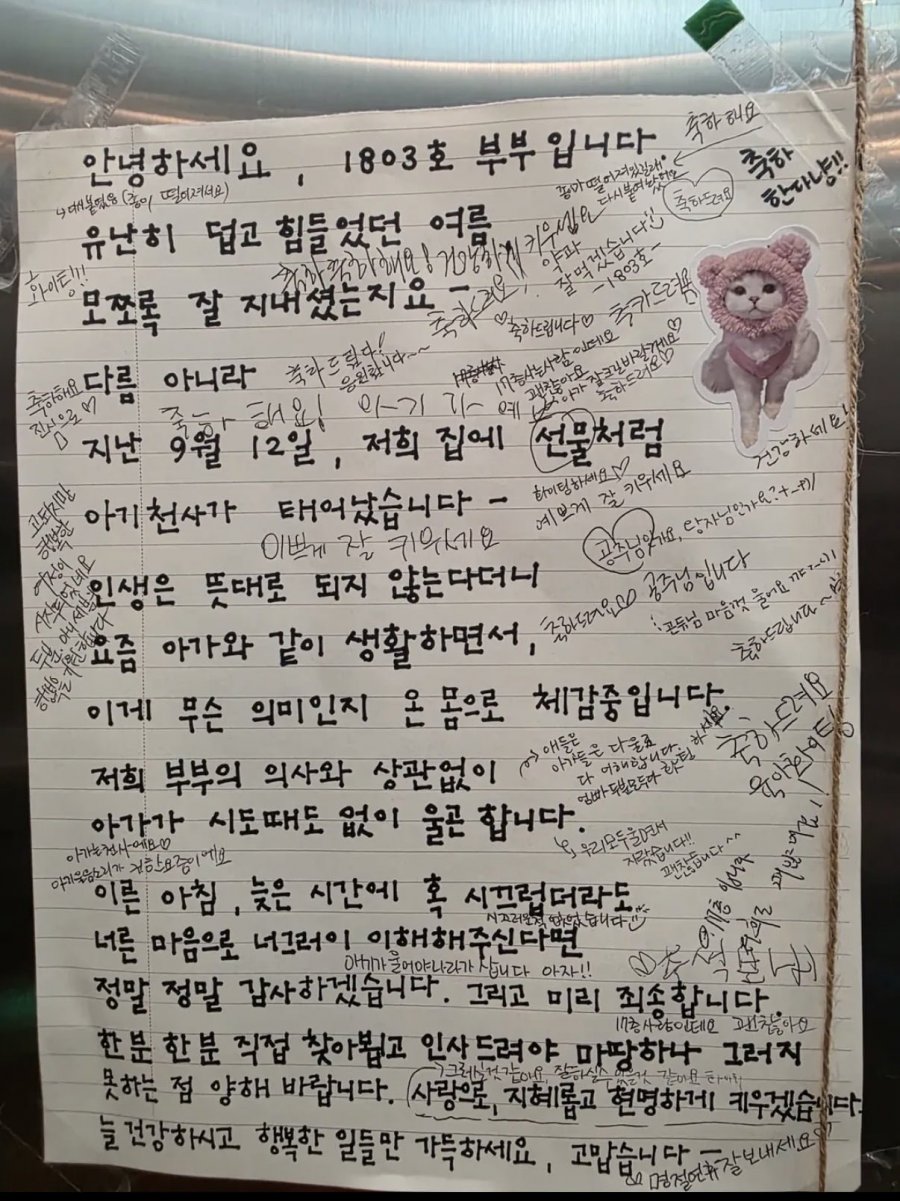 안녕하세요, 1803호 부부입니다
축하해요
축하
한다냥!!
축하드려요
유난히 덥고 힘들었던 여름
화이팅!!
모쪼록 잘 지내셨는지요 -
약과
잘 먹겠습니다!!
- 1803호 -
축하드려요!
♡축하드립니다♡
다름 아니라
축하드립니다!
응원합니다~~
17층사는사람인데요
괜찮아요
축하드려요♡
축하해요
진심으로♡
축하해요!
지난 9월 12일, 저희 집에 선물처럼
건강하세요!
아기천사가 태어났습니다 -
화이팅하세요♡
예쁘게 잘 키우세요
이쁘게 잘 키우세요
공주님인가요, 왕자님인가요?
인생은 뜻대로 되지 않는다더니
축하드려요♡♡ 공주님입니다
요즘 아가와 같이 생활하면서,
축하드립니다~
이게 무슨 의미인지 온 몸으로 체감중입니다.
축하드려요
육아화이팅!
저희 부부의 의사와 상관없이
애들은
아가들은 다 울죠
다 이해합니다.
아가가 시도때도 없이 울곤 합니다.
우리모두울면서
자랐습니다!!
괜찮습니다~~
아가는천사에요♡
이른 아침, 늦은 시간에 혹 시끄럽더라도
너른 마음으로 너그러이 이해해주신다면
아기가울어야나라가삽니다 아자!!
정말 정말 감사하겠습니다. 그리고 미리 죄송합니다.
17층사람인데요 괜찮아요
한분 한분 직접 찾아뵙고 인사드려야 마땅하나 그러지
못하는 점 양해 바랍니다. 사랑으로, 지혜롭고 현명하게 키우겠습니다.
늘 건강하시고 행복한 일들만 가득하세요, 고맙습니다 -
명절연휴잘보내세요